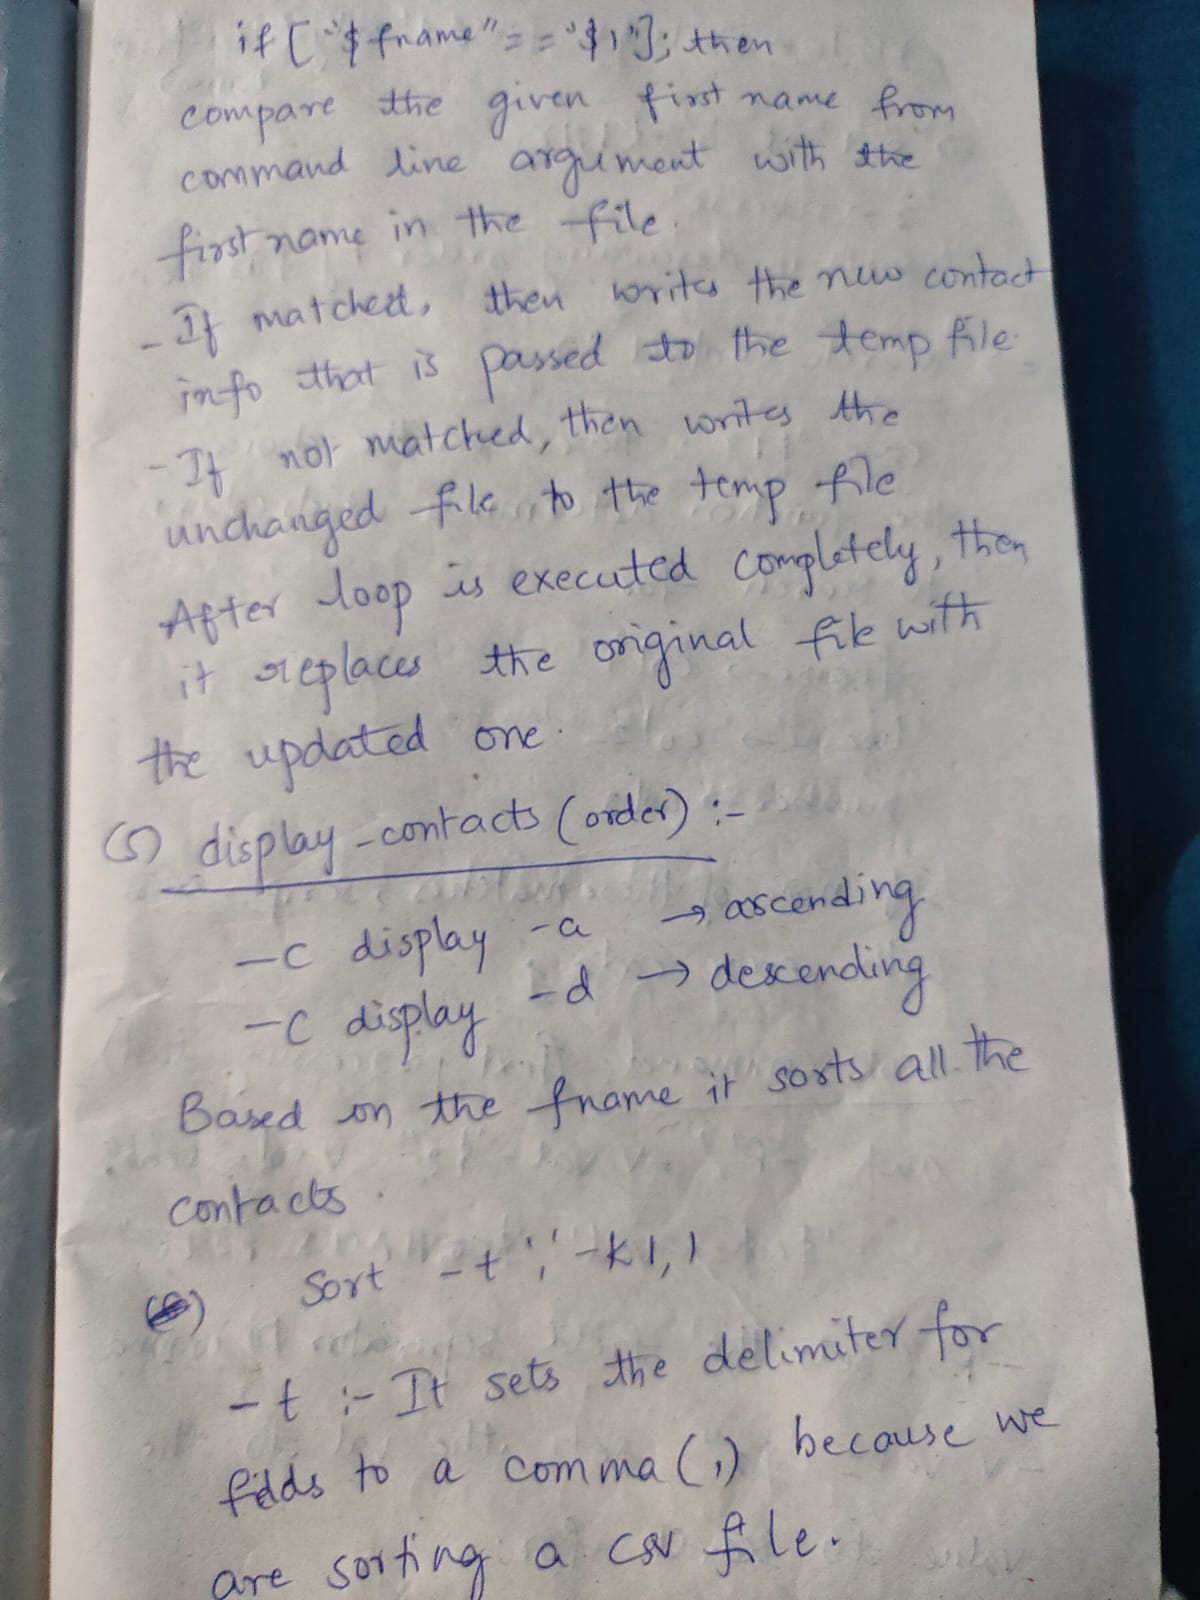 if ["$fname"=="$1"]; then
compare the given first name from
command line argument with the
first name in the file.
- If matched, then writes the new contact
info that is passed to the temp file.
- If not matched, then writes the
unchanged file to the temp file
After loop is executed completely, then
it replaces the original file with
the updated one.
(5) display-contacts (order) :-
-c display -a → ascending
-c display -d → descending
Based on the fname it sorts all the
contacts.
sort -t ',' -k1,1
-t :- It sets the delimiter for
fields to a comma (,) because we
are sorting a csv file.